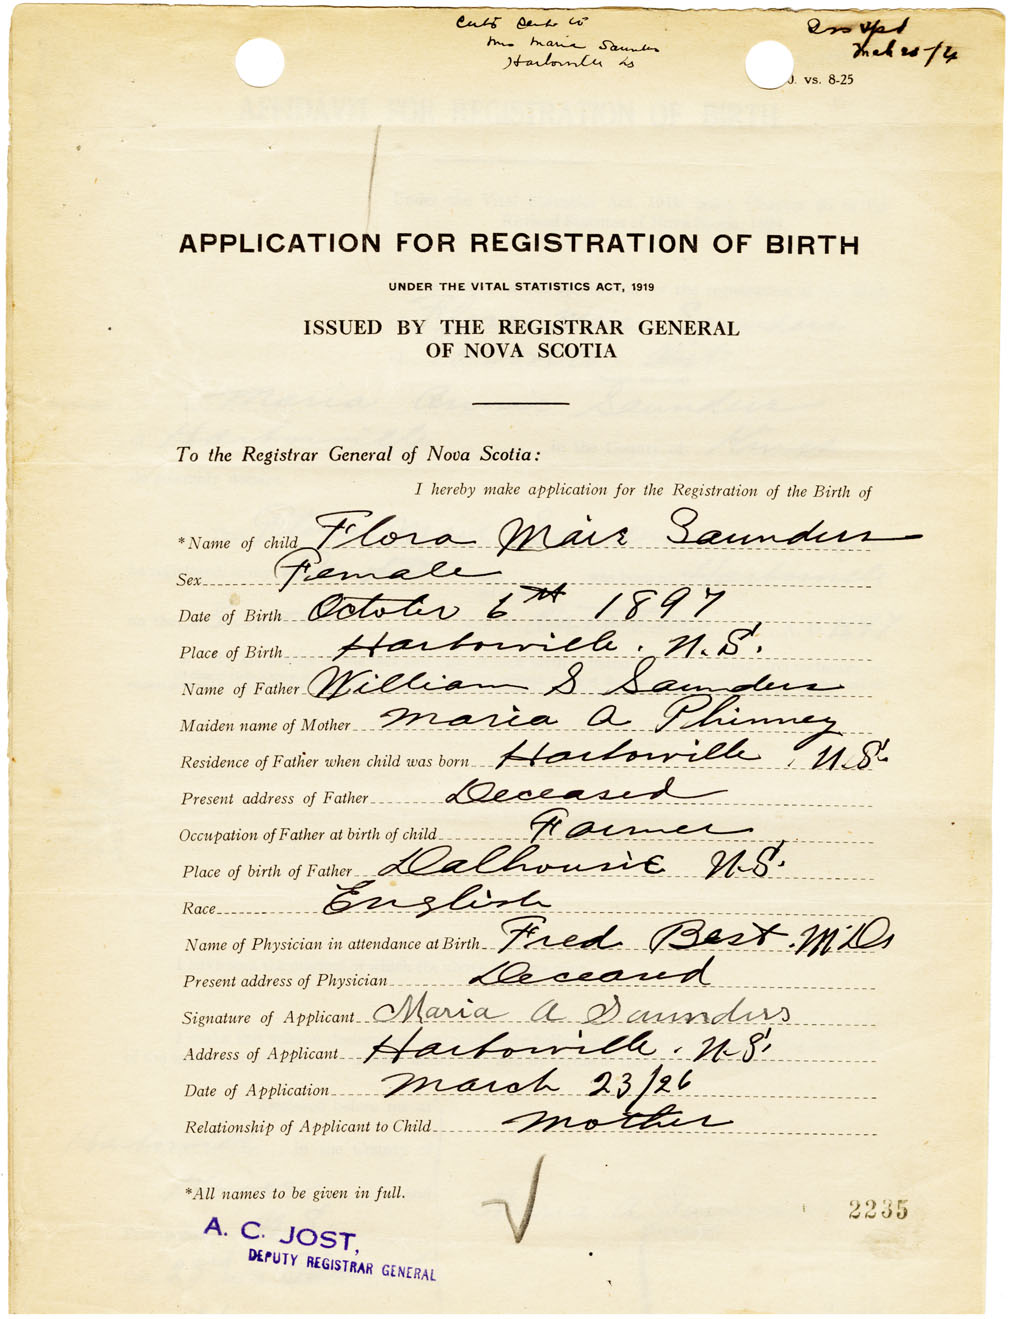 Certs Sent to
Mrs Maria Saunders
Harborville NS
Mch 26/26
vs. 8-25
APPLICATION FOR REGISTRATION OF BIRTH
UNDER THE VITAL STATISTICS ACT, 1919
ISSUED BY THE REGISTRAR GENERAL
OF NOVA SCOTIA
To the Registrar General of Nova Scotia:
I hereby make application for the Registration of the Birth of
*Name of child Flora Maie Saunders
Sex Female
Date of Birth October 6th 1897
Place of Birth Harborville. N.S.
Name of Father William S Saunders
Maiden name of Mother Maria A Phinney
Residence of Father when child was born Harborville, N.S.
Present address of Father Deceased
Occupation of Father at birth of child Farmer
Place of birth of Father Dalhousie N.S.
Race English
Name of Physician in attendance at Birth Fred Best. M.D.
Present address of Physician Deceased
Signature of Applicant Maria A Saunders
Address of Applicant Harborville. N.S.
Date of Application March 23/26
Relationship of Applicant to Child Mother
*All names to be given in full.
2235
A. C. JOST,
DEPUTY REGISTRAR GENERAL